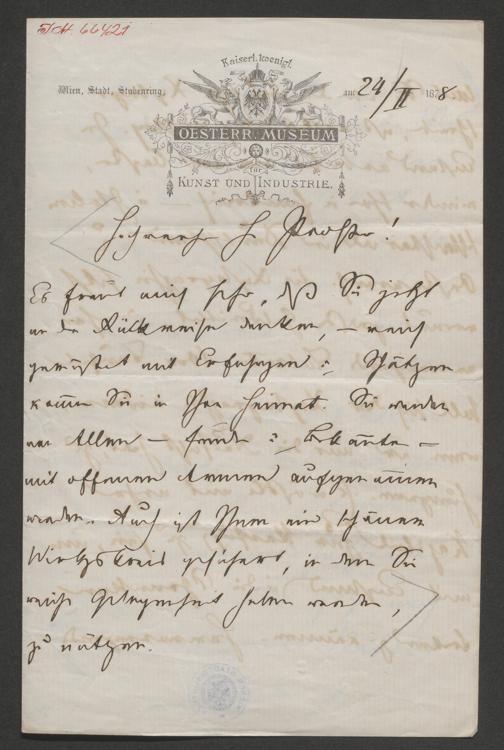 JCH 66421
Kaiserl. koenigl.
Wien, Stadt, Stubenring,
am 24/II 1878
OESTERR. MUSEUM
für
KUNST UND INDUSTRIE.
Hochwerther H
Es freut mich sehr, daß Sie jetzt
an die Rückreise denken, – reich
gerüstet mit Erfahrungen u. Schätzen
kommen Sie in Ihre Heimat. Sie werden
von Allen – Freunden u. Bekannten –
mit offenen Armen aufgenommen
werden. Auch ist Ihnen ein schöner
Wirkungskreis gesichert, in dem Sie
reiche Gelegenheit haben werden,
zu nützen.